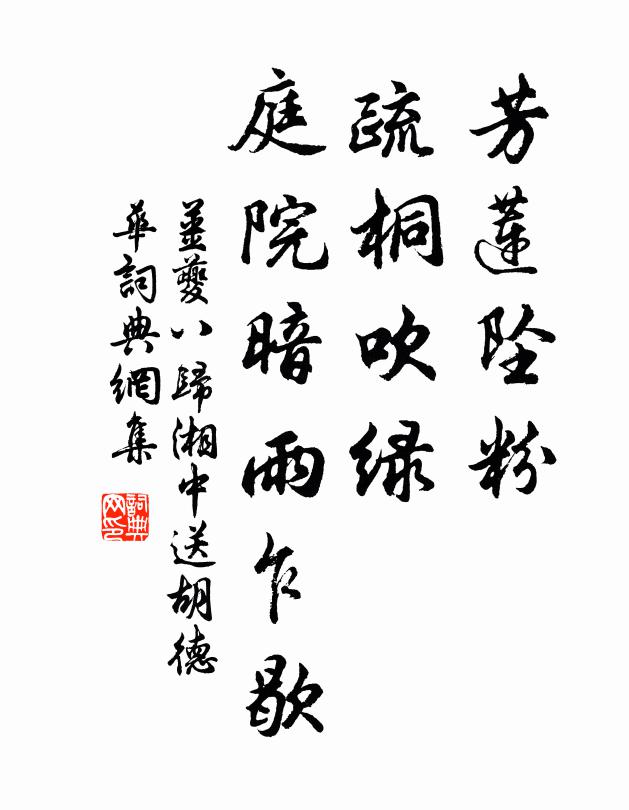 芳蓮坠粉
疏桐吹绿
庭院暗雨乍歇
姜夔八歸湘中送胡德
華詞典網集
詞典网印